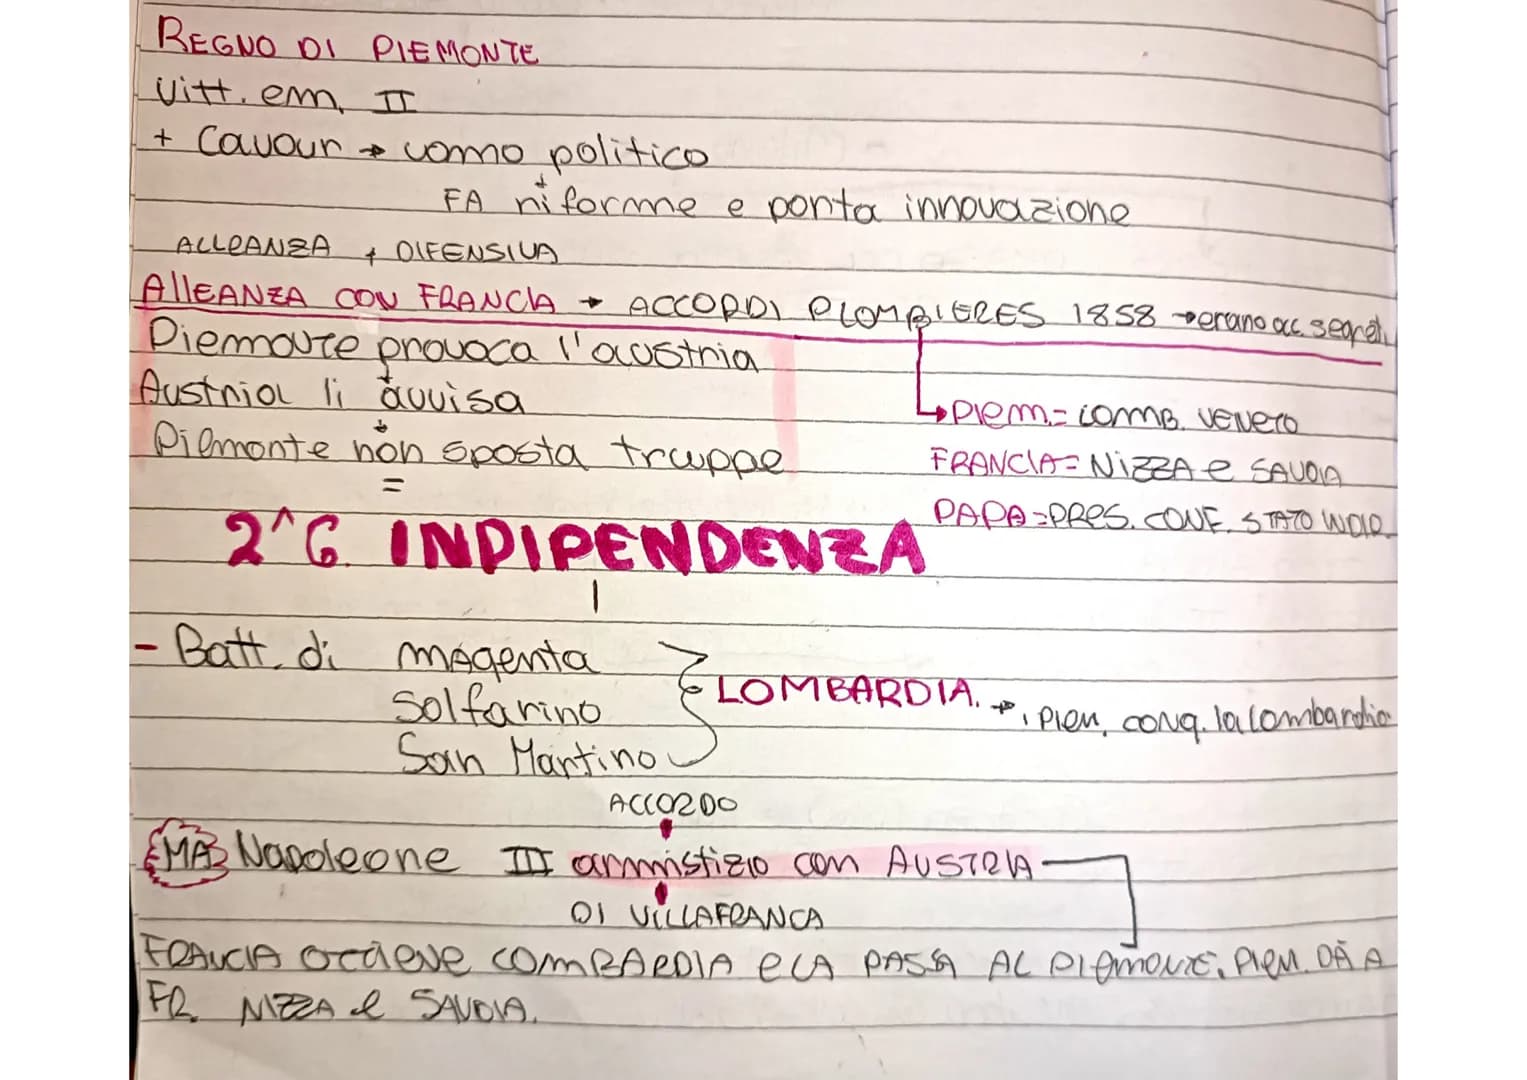 REGNO DI PIEMONTE
Vitt. em. II
+ Cavour → uomo politico
FA riforme e porta innovazione
ALLEANZA + DIFENSIVA
AllEANZA CON FRANCIA → ACCORDI PLOMBIERES 1858 → erano acc. segreti
Piemonte provoca l'austria
Austria li avvisa
→ PIem. = LOMB. VENETO
Piemonte non sposta truppe
FRANCIA = NIZZA e SAVOIA
=
PAPA = PRES. CONF. STATO
2^G. INDIPENDENZA
- Batt. di magenta
Solfarino
LOMBARDIA. → Piem. conq. la lombardia
San Martino
ACCORDO
MA Napoleone III armistizio con AUSTRIA
DI VILLAFRANCA
FRANCIA OTTIENE LOMBARDIA E LA PASSA AL PIEMONTE. PIEM. DÀ A
FR. NIZZA e SAVOIA.